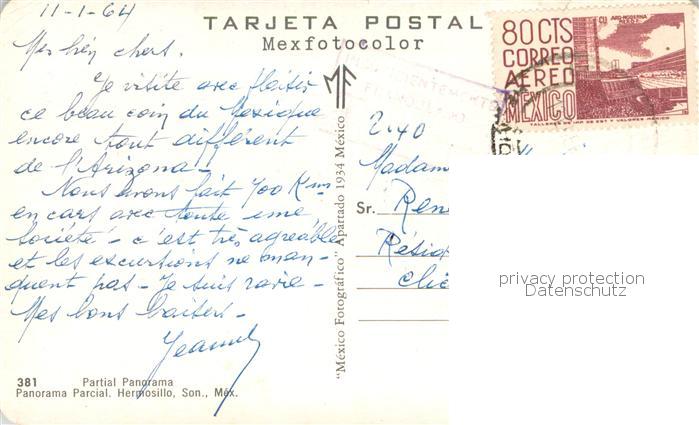 11-1-64
TARJETA POSTAL
Mexfotocolor
Mes bien chers.
Je visite avec plaisir
ce beau coin du Mexique
encore tout différent
de l'Arizona -
Nous avons fait 700 Kms
en cars avec toute une
société - c'est très agréable
et les excursions ne man-
quent pas - Je suis ravie -
Mes bons baisers -
381 Partial Panorama
Panorama Parcial. Hermosillo, Son., Méx.
"México Fotográfico" Apartado 1934 México
MF
80 CTS
CORREO
AEREO
MEXICO
ARQ. MODERNA
2.40
Madam
Sr. Ren
Résid
privacy protection
Datenschutz